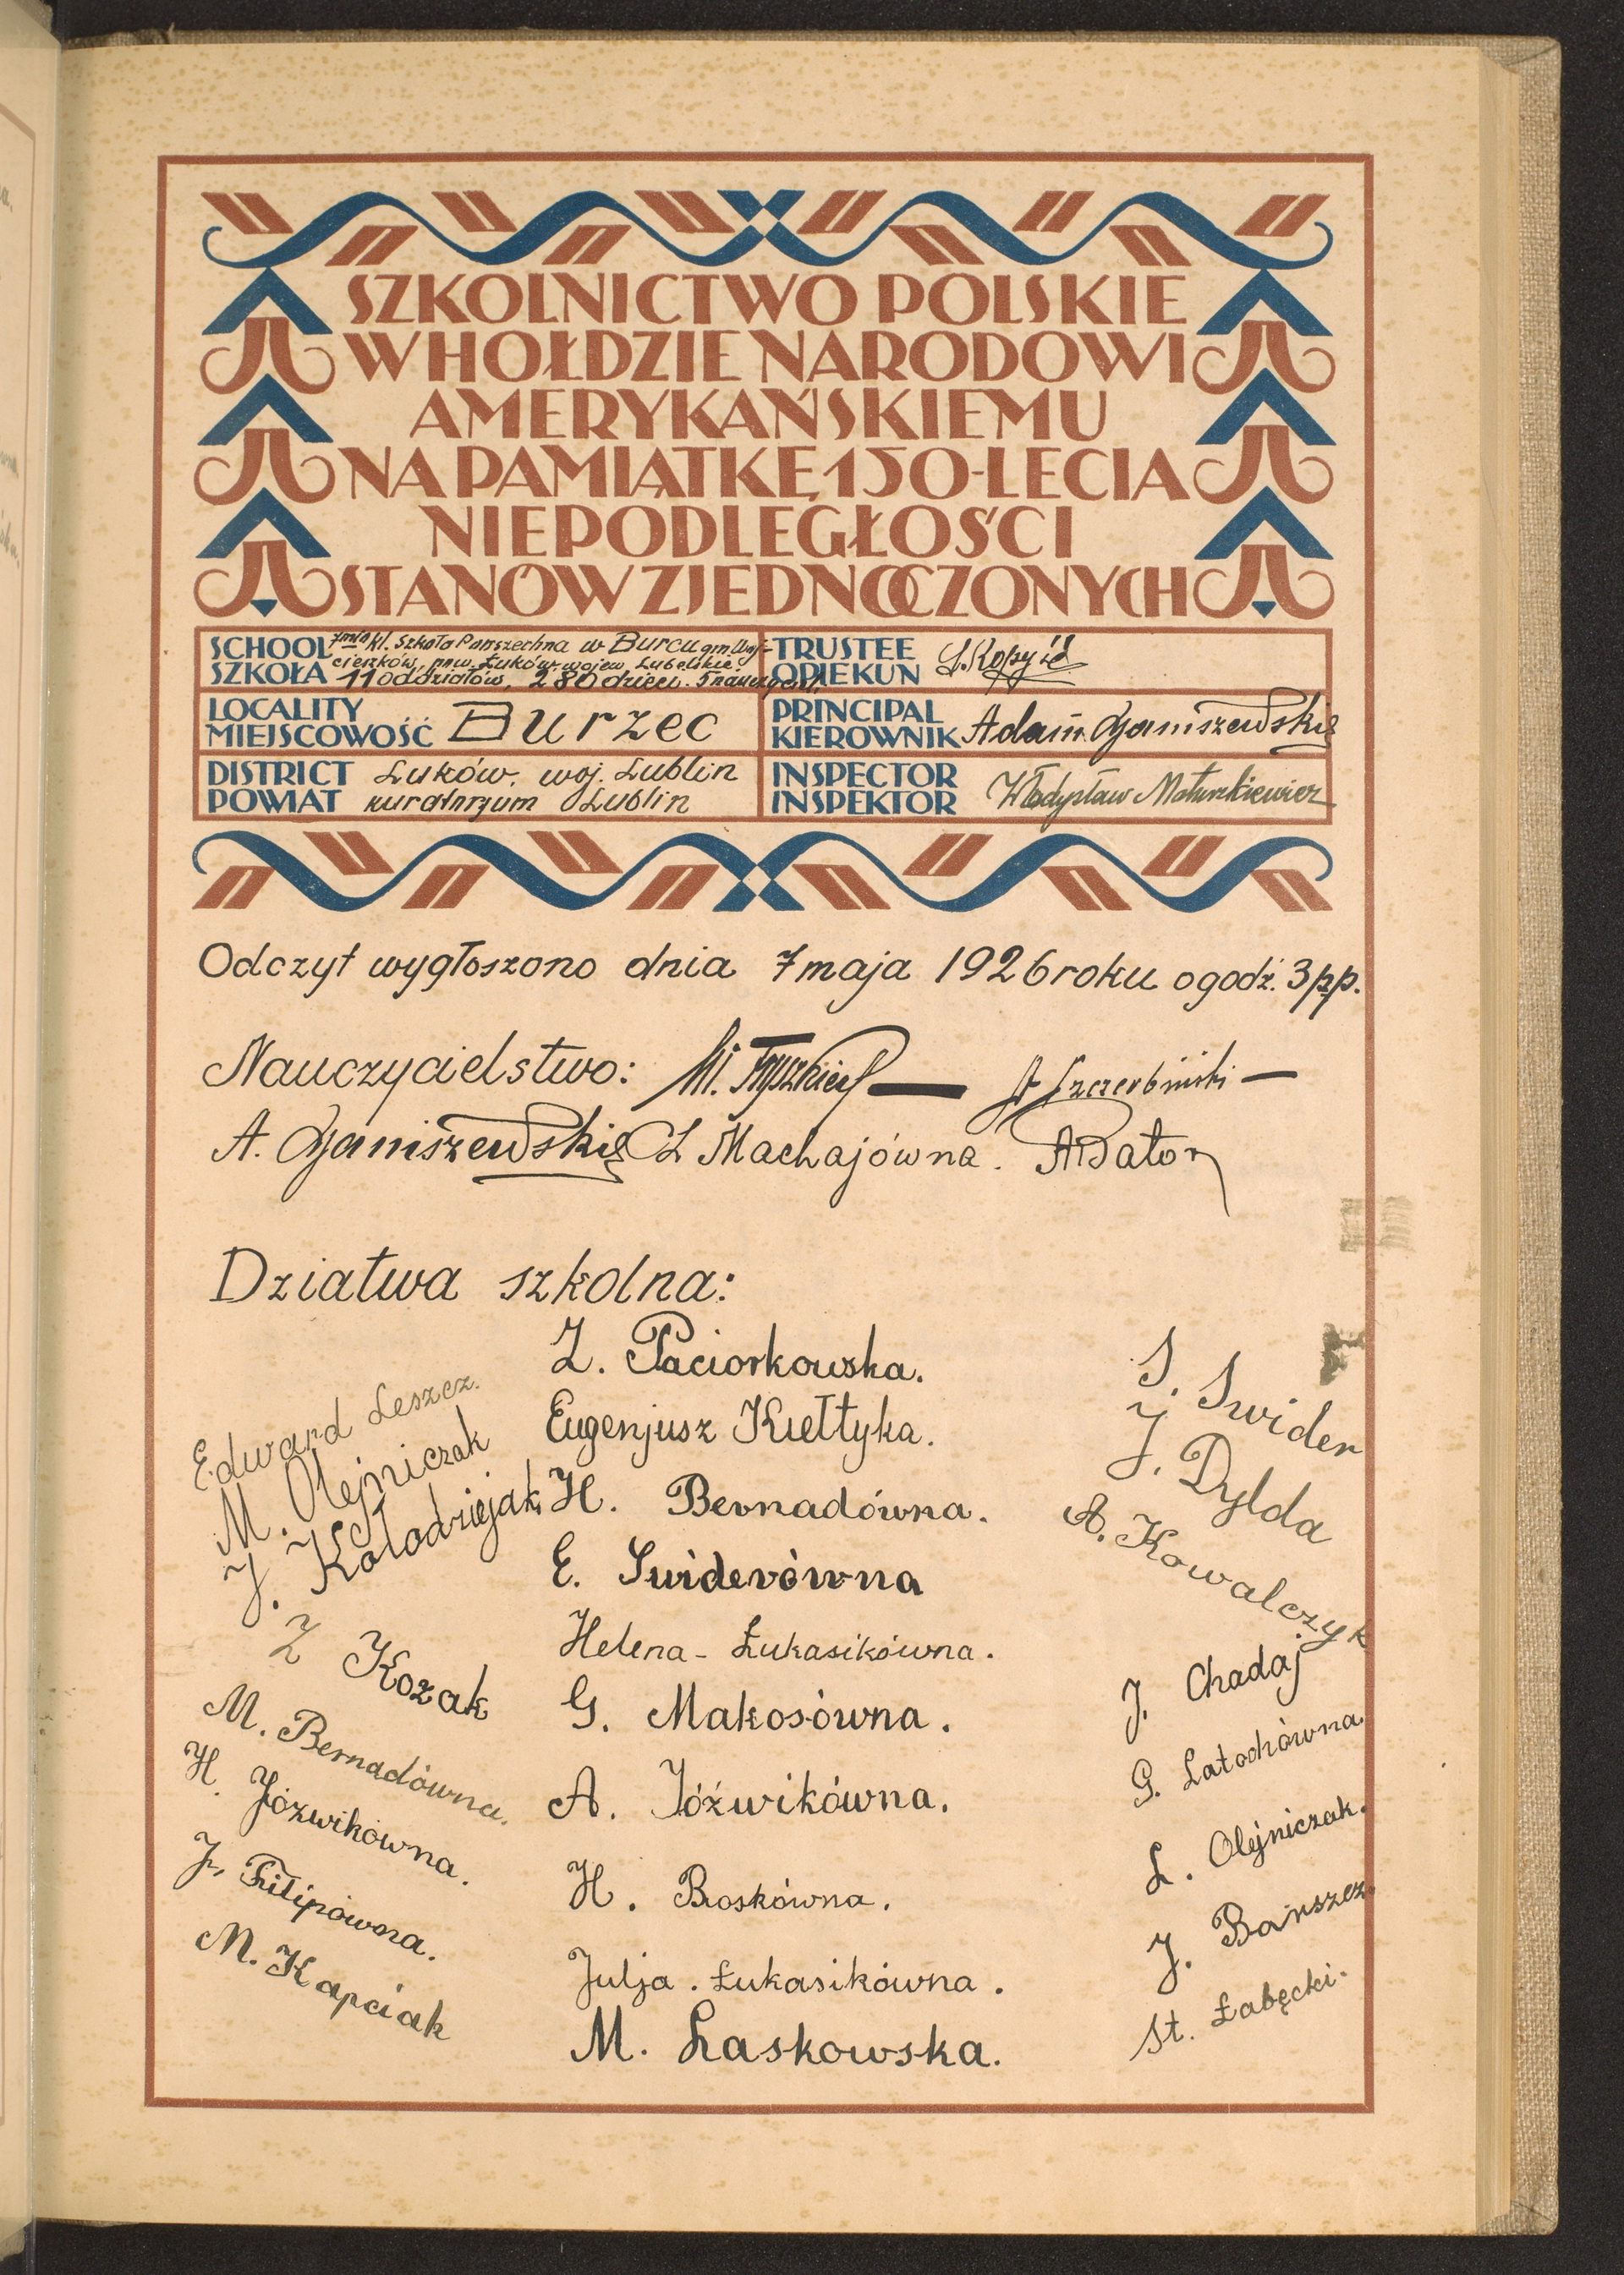 SZKOLNICTWO POLSKIE
W HOŁDZIE NARODOWI
AMERYKAŃSKIEMU
NA PAMIĄTKĘ 150-LECIA
NIEPODLEGŁOŚCI
STANÓW ZJEDNOCZONYCH
SCHOOL
SZKOŁA
7mio kl. Szkoła Powszechna w Burcu gm. Woj-
cieszków, pow. Łuków, wojew. Lubelskie.
11 oddziałów, 280 dzieci. 5 nauczycieli.
TRUSTEE
OPIEKUN
LOCALITY
MIEJSCOWOŚĆ Burzec
PRINCIPAL
KIEROWNIK Adam Ganiszewski
DISTRICT
POWIAT
Łuków, woj. Lublin
kuratorjum Lublin
INSPECTOR
INSPEKTOR Władysław Matuszkiewicz
Odczyt wygłoszono dnia 7 maja 1926 roku o godź. 3 pp.
Nauczycielstwo: St Szczerbiński
A. Ganiszewski Z Machajówna. A Bator
Dziatwa szkolna:
Edward Leszcz.
M. Olejniczak
J. Kołodziejak
Z Kozak
M. Bernadówna.
H. Jóźwikówna.
J. Filipówna.
M. Kapciak
Z. Paciorkowska.
Eugenjusz Kiełtyka.
H. Bernadówna.
E. Swiderówna
Helena - Łukasikówna.
G. Makosówna.
A. Jóźwikówna.
H. Boskówna.
Julja. Łukasikówna.
M. Laskowska.
S. Swider
J. Dylda
A. Kowalczyk
J. Chadaj
G. Latochówna.
L. Olejniczak.
J. Barszcz.
St. Łabęcki.